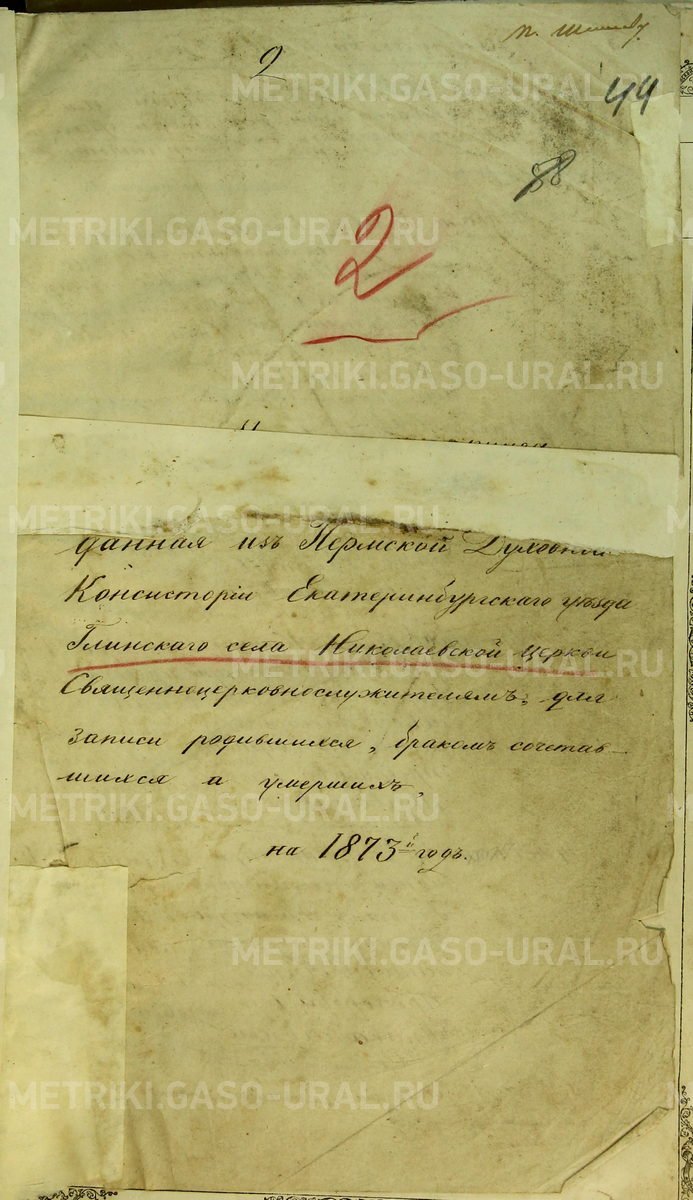 2
44
88
2
данная изъ Пермской Духовной
Консисторіи Екатеринбургскаго уѣзда
Глинскаго села Николаевской церкви
Священноцерковнослужителямъ, для
записи родившихся, бракомъ сочетав-
шихся и умершихъ,
на 1873й годъ.
METRIKI.GASO-URAL.RU
METRIKI.GASO-URAL.RU
METRIKI.GASO-URAL.RU
METRIKI.GASO-URAL.RU
METRIKI.GASO-URAL.RU
METRIKI.GASO-URAL.RU
METRIKI.GASO-URAL.RU
METRIKI.GASO-URAL.RU